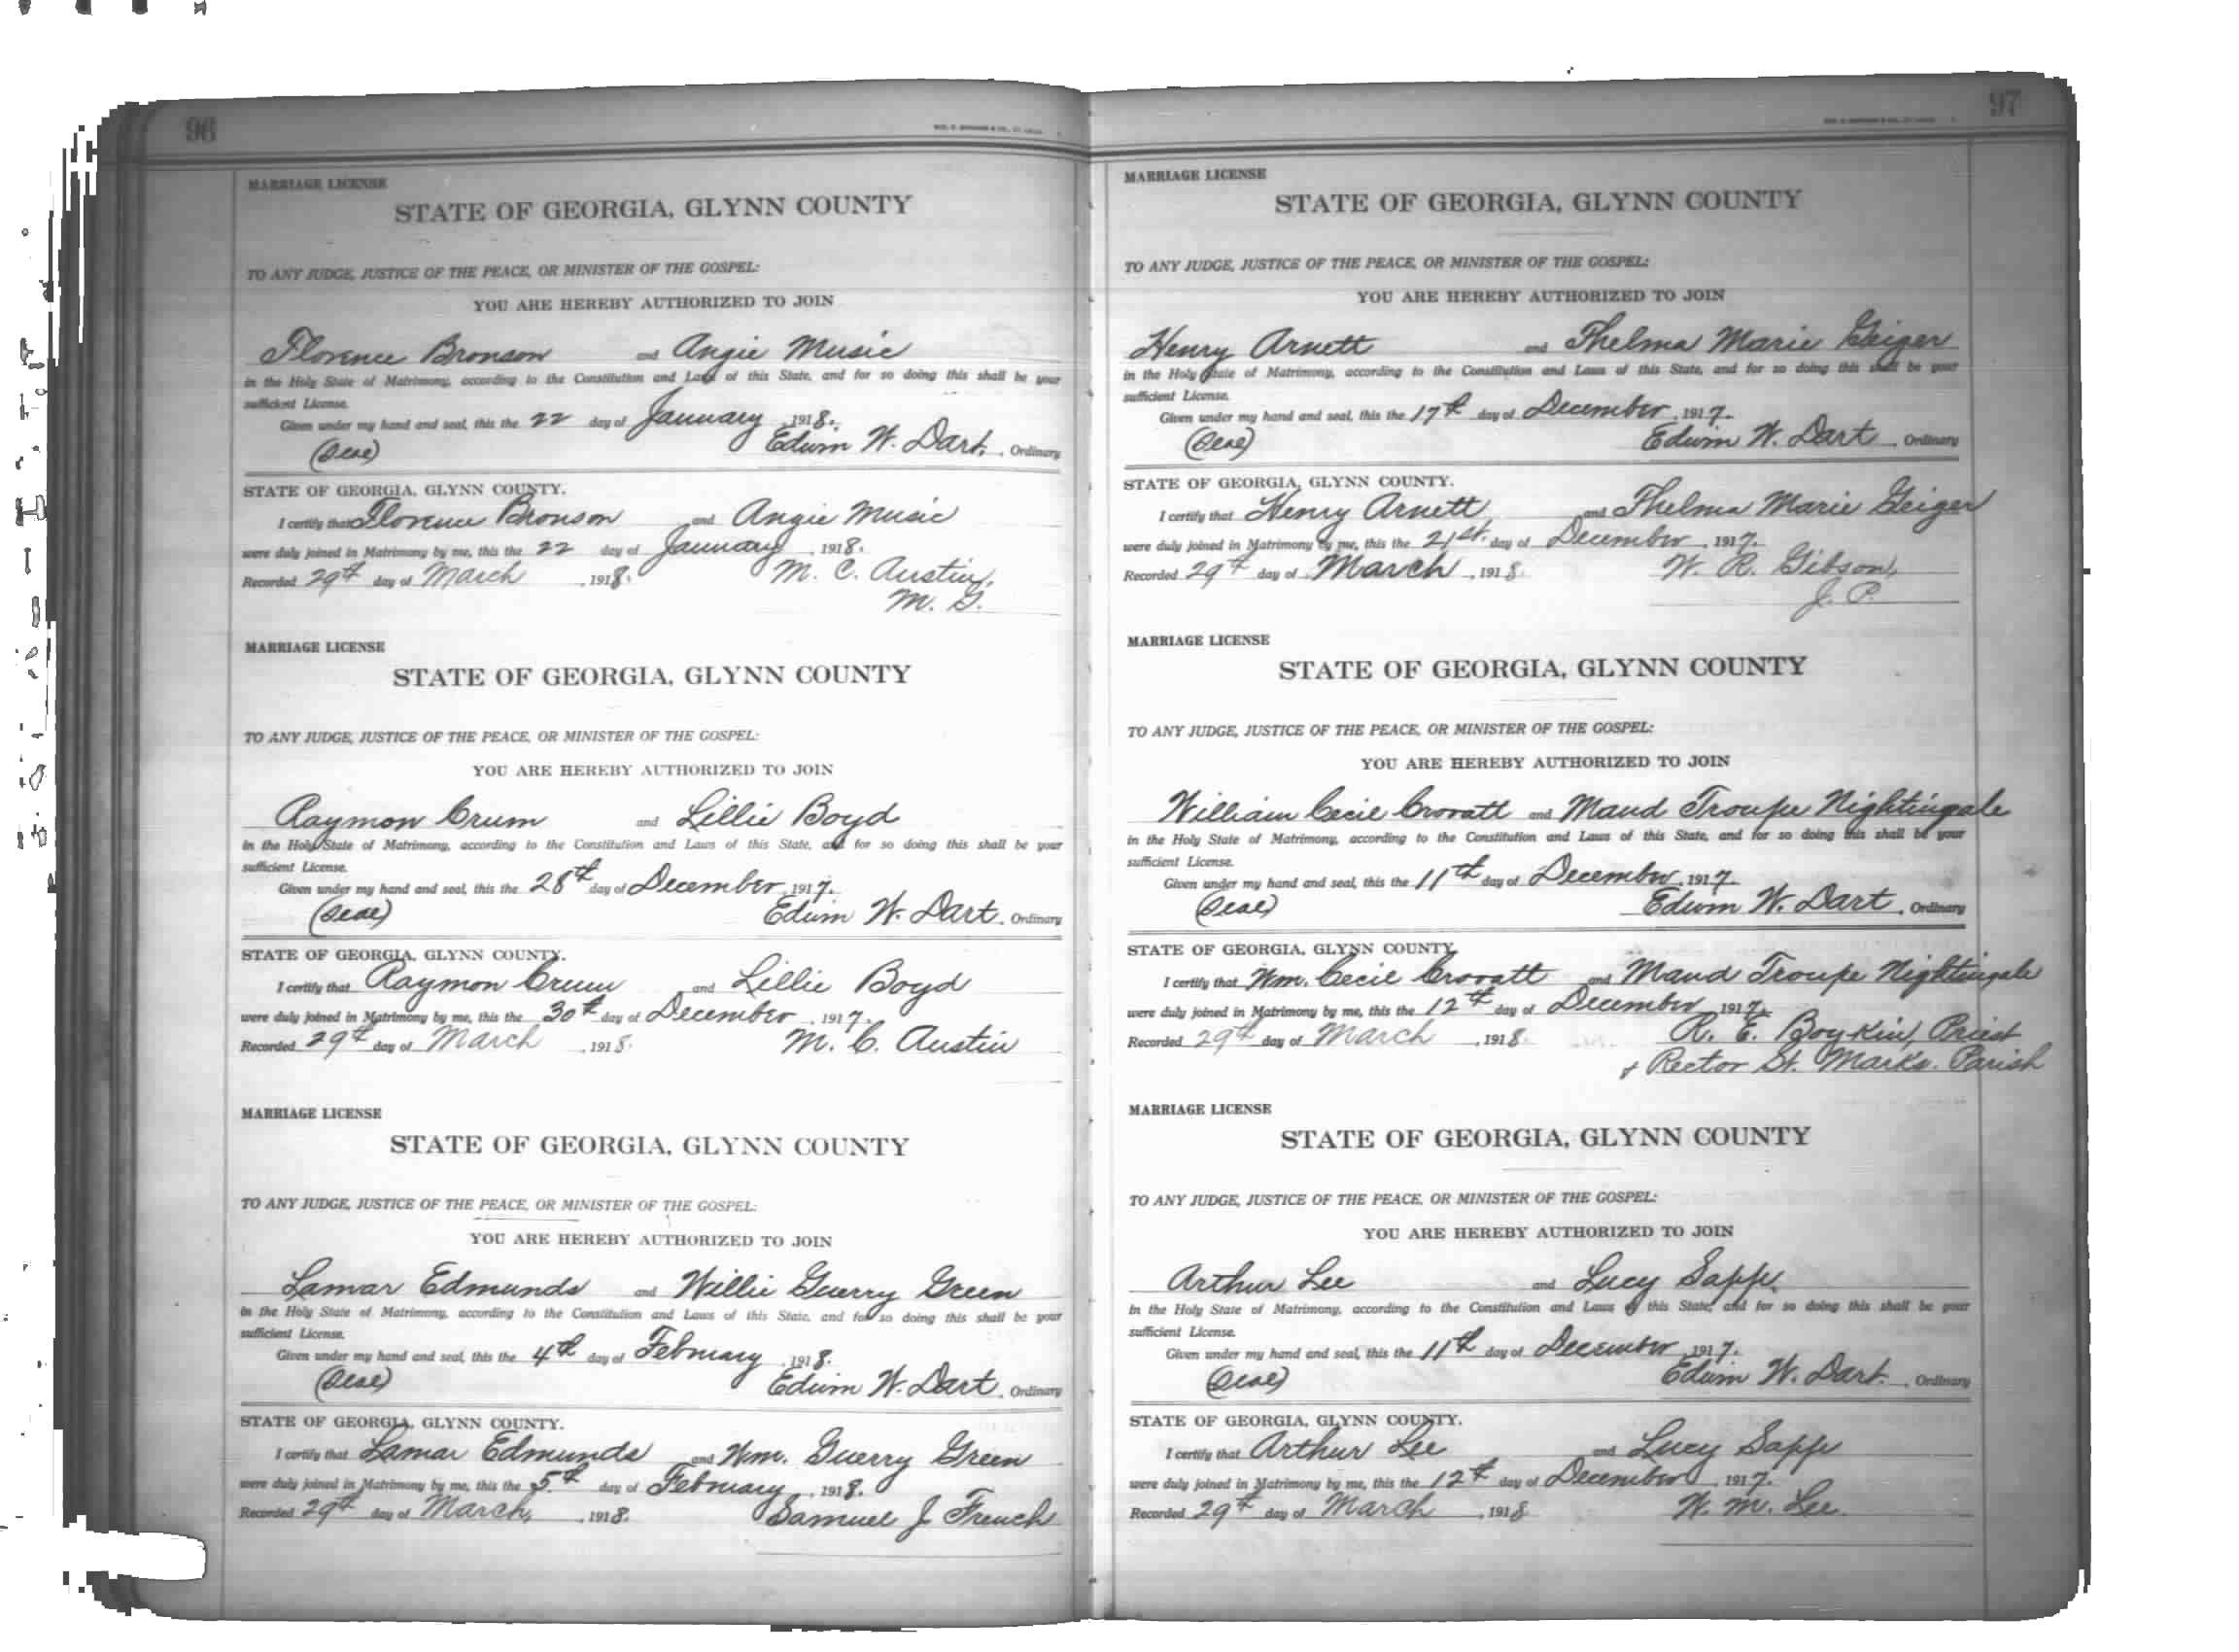 96
MARRIAGE LICENSE
STATE OF GEORGIA, GLYNN COUNTY
TO ANY JUDGE, JUSTICE OF THE PEACE, OR MINISTER OF THE GOSPEL:
YOU ARE HEREBY AUTHORIZED TO JOIN
Florence Bronson and Angie Music
in the Holy State of Matrimony, according to the Constitution and Laws of this State, and for so doing this shall be your
sufficient License.
Given under my hand and seal, this the 22 day of January, 1918.
(Seal) Edwin W. Dart, Ordinary
STATE OF GEORGIA, GLYNN COUNTY.
I certify that Florence Bronson and Angie Music
were duly joined in Matrimony by me, this the 22 day of January, 1918.
Recorded 29th day of March, 1918. M. C. Austin,
M. G.
MARRIAGE LICENSE
STATE OF GEORGIA, GLYNN COUNTY
TO ANY JUDGE, JUSTICE OF THE PEACE, OR MINISTER OF THE GOSPEL:
YOU ARE HEREBY AUTHORIZED TO JOIN
Raymon Crum and Lillie Boyd
in the Holy State of Matrimony, according to the Constitution and Laws of this State, and for so doing this shall be your
sufficient License.
Given under my hand and seal, this the 28th day of December, 1917.
(Seal) Edwin W. Dart, Ordinary
STATE OF GEORGIA, GLYNN COUNTY.
I certify that Raymon Crum and Lillie Boyd
were duly joined in Matrimony by me, this the 30th day of December, 1917.
Recorded 29th day of March, 1918. M. C. Austin
MARRIAGE LICENSE
STATE OF GEORGIA, GLYNN COUNTY
TO ANY JUDGE, JUSTICE OF THE PEACE, OR MINISTER OF THE GOSPEL:
YOU ARE HEREBY AUTHORIZED TO JOIN
Lamar Edmunds and Willie Guerry Green
in the Holy State of Matrimony, according to the Constitution and Laws of this State, and for so doing this shall be your
sufficient License.
Given under my hand and seal, this the 4th day of February, 1918.
(Seal) Edwin W. Dart, Ordinary
STATE OF GEORGIA, GLYNN COUNTY.
I certify that Lamar Edmunds and Wm. Guerry Green
were duly joined in Matrimony by me, this the 5th day of February, 1918.
Recorded 29th day of March, 1918. Samuel J French
97
MARRIAGE LICENSE
STATE OF GEORGIA, GLYNN COUNTY
TO ANY JUDGE, JUSTICE OF THE PEACE, OR MINISTER OF THE GOSPEL:
YOU ARE HEREBY AUTHORIZED TO JOIN
Henry Arnett and Thelma Marie Geiger
in the Holy State of Matrimony, according to the Constitution and Laws of this State, and for so doing this shall be your
sufficient License.
Given under my hand and seal, this the 17th day of December, 1917.
(Seal) Edwin W. Dart, Ordinary
STATE OF GEORGIA, GLYNN COUNTY.
I certify that Henry Arnett and Thelma Marie Geiger
were duly joined in Matrimony by me, this the 21st. day of December, 1917.
Recorded 29th day of March, 1918. W. R. Gibson,
J. P.
MARRIAGE LICENSE
STATE OF GEORGIA, GLYNN COUNTY
TO ANY JUDGE, JUSTICE OF THE PEACE, OR MINISTER OF THE GOSPEL:
YOU ARE HEREBY AUTHORIZED TO JOIN
William Cecil Crovatt and Maud Troupe Nightingale
in the Holy State of Matrimony, according to the Constitution and Laws of this State, and for so doing this shall be your
sufficient License.
Given under my hand and seal, this the 11th day of December, 1917.
(Seal) Edwin W. Dart, Ordinary
STATE OF GEORGIA, GLYNN COUNTY.
I certify that Wm. Cecil Crovatt and Maud Troupe Nightingale
were duly joined in Matrimony by me, this the 12th day of December, 1917.
Recorded 29th day of March, 1918. R. E. Boykin, Priest
+ Rector St. Mark's. Parish
MARRIAGE LICENSE
STATE OF GEORGIA, GLYNN COUNTY
TO ANY JUDGE, JUSTICE OF THE PEACE, OR MINISTER OF THE GOSPEL:
YOU ARE HEREBY AUTHORIZED TO JOIN
Arthur Lee and Lucy Sapp.
in the Holy State of Matrimony, according to the Constitution and Laws of this State, and for so doing this shall be your
sufficient License.
Given under my hand and seal, this the 11th day of December, 1917.
(Seal) Edwin W. Dart, Ordinary
STATE OF GEORGIA, GLYNN COUNTY.
I certify that Arthur Lee and Lucy Sapp
were duly joined in Matrimony by me, this the 12th day of December, 1917.
Recorded 29th day of March, 1918. W. M. Lee.